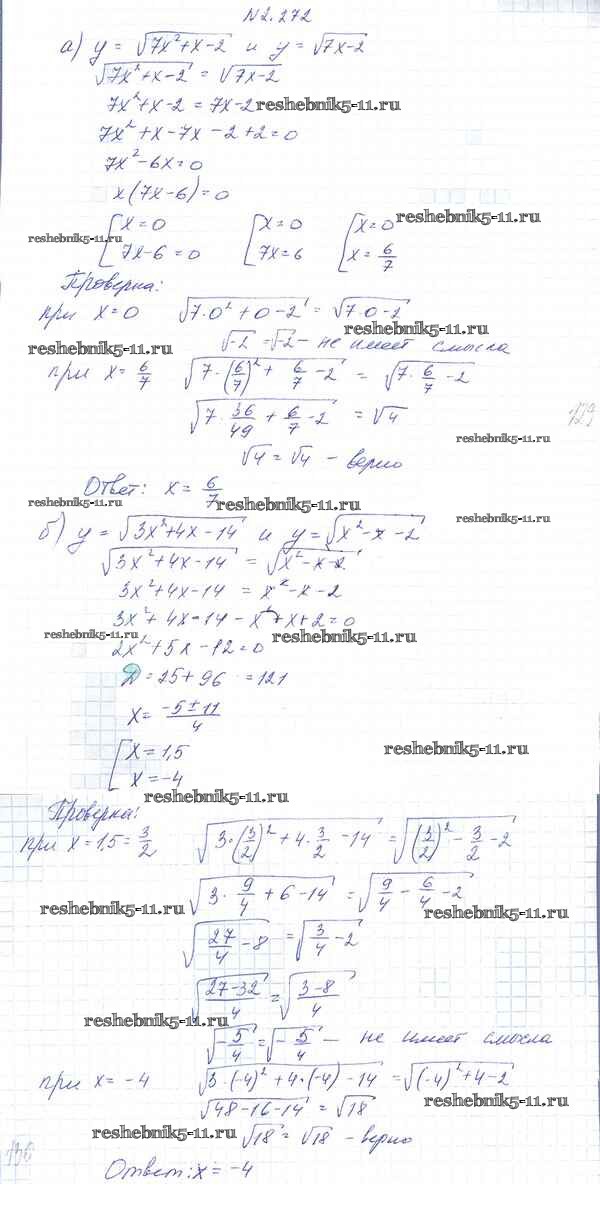 №2.272
а) y = √(7x²+x-2) и y = √(7x-2)
√(7x²+x-2) = √(7x-2)
7x²+x-2 = 7x-2
reshebnik5-11.ru
7x²+x-7x-2+2=0
7x²-6x=0
x(7x-6)=0
reshebnik5-11.ru
[x=0 [x=0 [x=0
7x-6=0 7x=6 x=6/7
reshebnik5-11.ru
Проверка:
при x=0 √(7·0²+0-2) = √(7·0-2)
reshebnik5-11.ru
√-2 = √-2 - не имеет смысла
reshebnik5-11.ru
при x=6/7 √(7·(6/7)²+6/7-2) = √(7·6/7-2)
√(7·36/49+6/7-2) = √4
129
reshebnik5-11.ru
√4=√4 - верно
Ответ: x=6/7
reshebnik5-11.ru
reshebnik5-11.ru
reshebnik5-11.ru
б) y=√(3x²+4x-14) и y=√(x²-x-2)
√(3x²+4x-14) = √(x²-x-2)
3x²+4x-14 = x²-x-2
3x²+4x-14-x²+x+2=0
reshebnik5-11.ru
reshebnik5-11.ru
2x²+5x-12=0
Д=25+96=121
x=(-5±11)/4
[x=1,5
x=-4
reshebnik5-11.ru
reshebnik5-11.ru
Проверка:
при x=1,5=3/2 √(3·(3/2)²+4·3/2-14) = √((3/2)²-3/2-2)
√(3·9/4+6-14) = √(9/4-6/4-2)
reshebnik5-11.ru
reshebnik5-11.ru
√(27/4-8) = √(3/4-2)
√((27-32)/4) = √((3-8)/4)
reshebnik5-11.ru
√(-5/4)=√(-5/4) - не имеет смысла
при x=-4 √(3·(-4)²+4·(-4)-14) = √((-4)²+4-2)
reshebnik5-11.ru
√(48-16-14) = √18
reshebnik5-11.ru
√18=√18 - верно
Ответ: x=-4